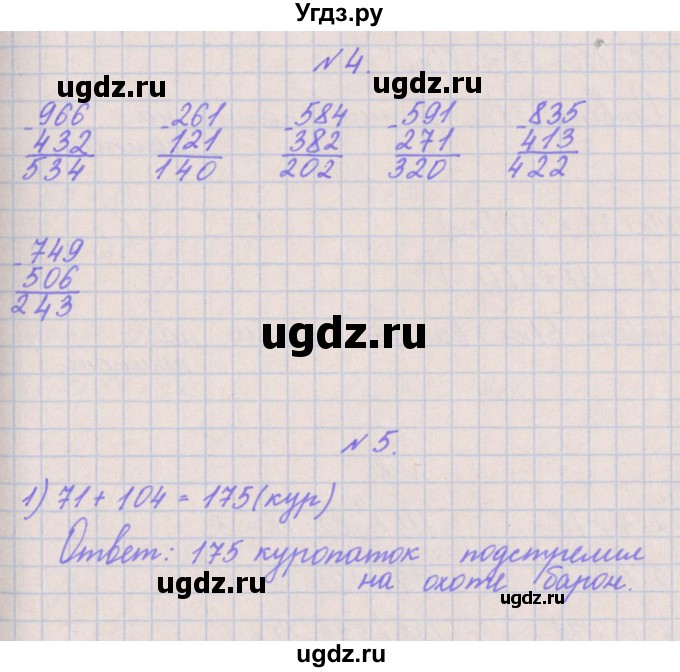 Угдз.ру
№ 4.
ugdz.ru ugdz.ru
-966 -261 -584 -591 -835
432 121 382 271 413
534 140 202 320 422
-749
506
243
ugdz.ru
№ 5.
1) 71 + 104 = 175 (кур)
Ответ: 175 куропаток подстрелил
на охоте барон.
ugdz.ru ugdz.ru
ugdz.ru